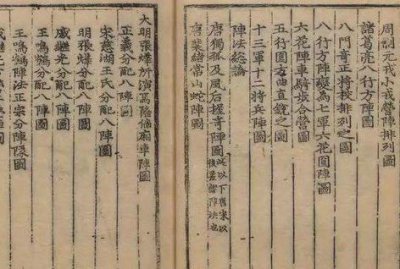 周制元戎小戎營陣排列圖
諸葛亮八行方陣圖
八門奇正將校排列之圖
八行方陣礙為七軍六花圖陣
六花陣車騎步合營圖
五行圖方曲直銳之圖
十三軍十二將兵陣圖
陣法總論
唐獨孤及風后握奇陣圖
唐裴緒常山蛇陣圖
大明張燧所演萬陰偏廂車陣圖
正義分配八陣圖
宋慈湖王氏分配八陣圖
明張燧分配八陣圖
戚繼光分配八陣圖
王鳴鶴分配八陣圖
王鳴鶴陣法正宗分陣圖